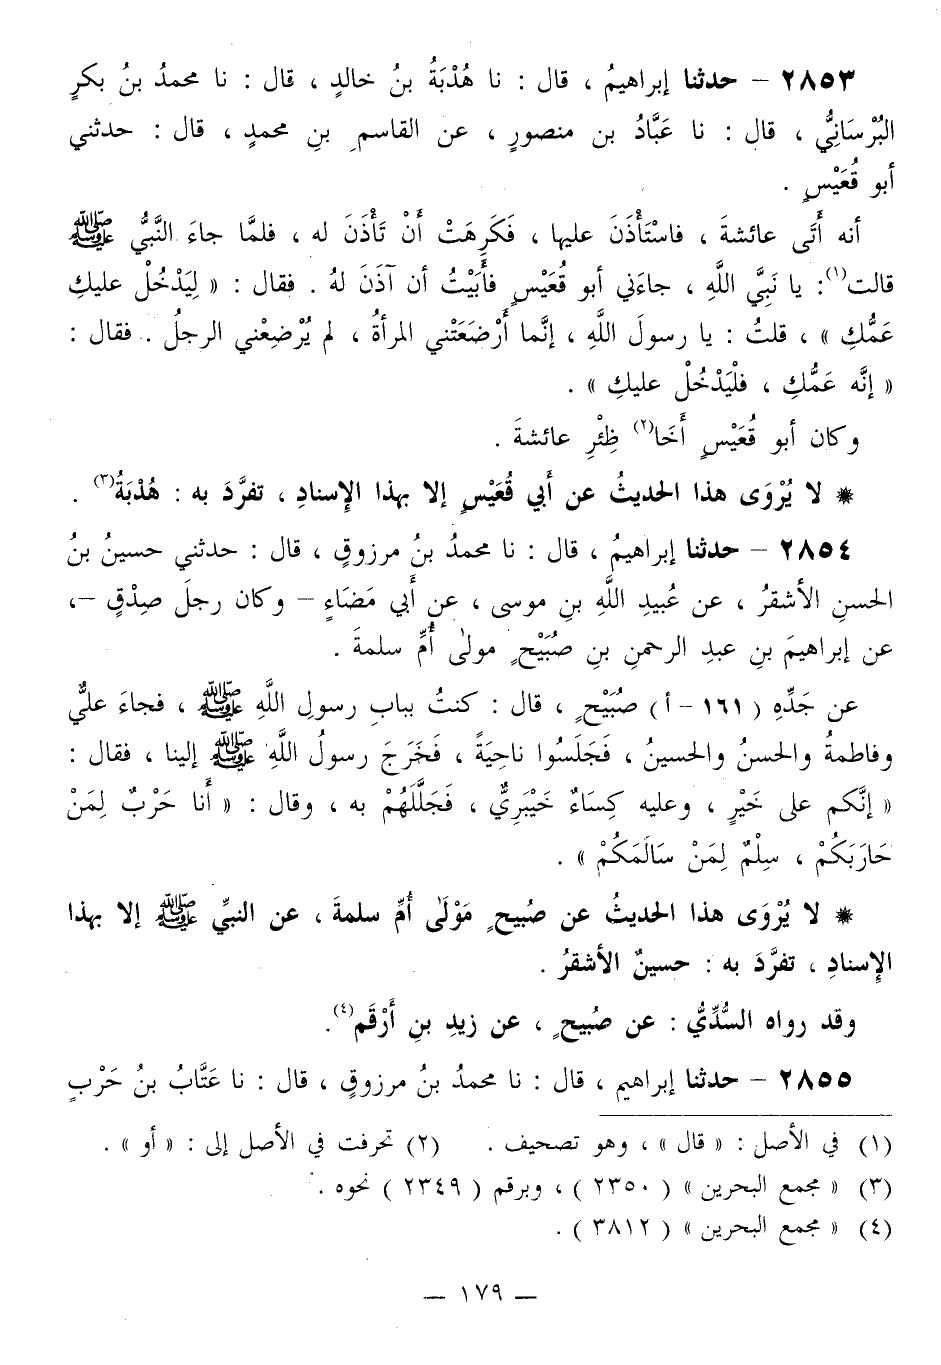 ٢٨٥٣ – حدثنا إبراهيمُ ، قال : نا هُدْبَةُ بنُ خالدٍ ، قال : نا محمدُ بنُ بكرٍ
البُرْسَانِيُّ ، قال : نا عَبَّادُ بن منصورٍ ، عن القاسمِ بنِ محمدٍ ، قال : حدثني
أبو قُعَيْسٍ .
أنه أَتَى عائشةَ ، فاسْتَأْذَنَ عليها ، فَكَرِهَتْ أَنْ تَأْذَنَ له ، فلمَّا جاءَ النَّبيُّ ﷺ
قالت(١): يا نَبِيَّ اللَّهِ ، جاءَني أبو قُعَيْسٍ فأَبَيْتُ أن آذَنَ لهُ . فقال : « لِيَدْخُلْ عليكِ
عَمُّكِ » ، قلتُ : يا رسولَ اللَّهِ ، إنَّما أَرْضَعَتْني المرأةُ ، لم يُرْضِعْني الرجلُ . فقال :
« إنَّه عَمُّكِ ، فلْيَدْخُلْ عليكِ » .
وكان أبو قُعَيْسٍ أَخَا(٢) ظِئْرِ عائشةَ .
* لا يُرْوَى هذا الحديثُ عن أَبي قُعَيْسٍ إلا بهذا الإسنادِ ، تفرَّدَ به : هُدْبَةُ(٣) .
٢٨٥٤ – حدثنا إبراهيمُ ، قال : نا محمدُ بنُ مرزوقٍ ، قال : حدثني حسينُ بنُ
الحسنِ الأشقرُ ، عن عُبيدِ اللَّهِ بنِ موسى ، عن أَبي مَضَاءٍ – وكان رجلَ صِدْقٍ –،
عن إبراهيمَ بنِ عبدِ الرحمنِ بنِ صُبَيْحٍ مولىٰ أُمِّ سلمةَ .
عن جَدِّهِ ( ١٦١ – أ ) صُبَيْحٍ ، قال : كنتُ ببابِ رسولِ اللَّهِ ﷺ ، فجاءَ عليٌّ
وفاطمةُ والحسنُ والحسينُ ، فَجَلَسُوا ناحِيَةً ، فَخَرَجَ رسولُ اللَّهِ ﷺ إلينا ، فقال :
« إنَّكم على خَيْرٍ ، وعليه كِسَاءٌ خَيْبَرِيٌّ ، فَجَلَّلَهُمْ به ، وقال : « أَنا حَرْبٌ لِمَنْ
حَارَبَكُمْ ، سِلْمٌ لِمَنْ سَالَمَكُمْ » .
* لا يُرْوَى هذا الحديثُ عن صُبيحٍ مَوْلَى أُمِّ سلمةَ ، عن النبيِّ ﷺ إلا بهذا
الإسنادِ ، تفرَّدَ به : حسينٌ الأشقرُ .
وقد رواه السُّدِّيُّ : عن صُبيحٍ ، عن زيدِ بنِ أَرْقَم(٤).
٢٨٥٥ – حدثنا إبراهيم ، قال : نا محمدُ بنُ مرزوقٍ ، قال : نا عَتَّابُ بنُ حَرْبٍ
(١) في الأصل : « قال » ، وهو تصحيف . (٢) تحرفت في الأصل إلى : « أو » .
(٣) « مجمع البحرين » ( ٢٣٥٠ ) ، وبرقم ( ٢٣٤٩ ) نحوه .
(٤) « مجمع البحرين » ( ٣٨١٢ ) .
– ١٧٩ –